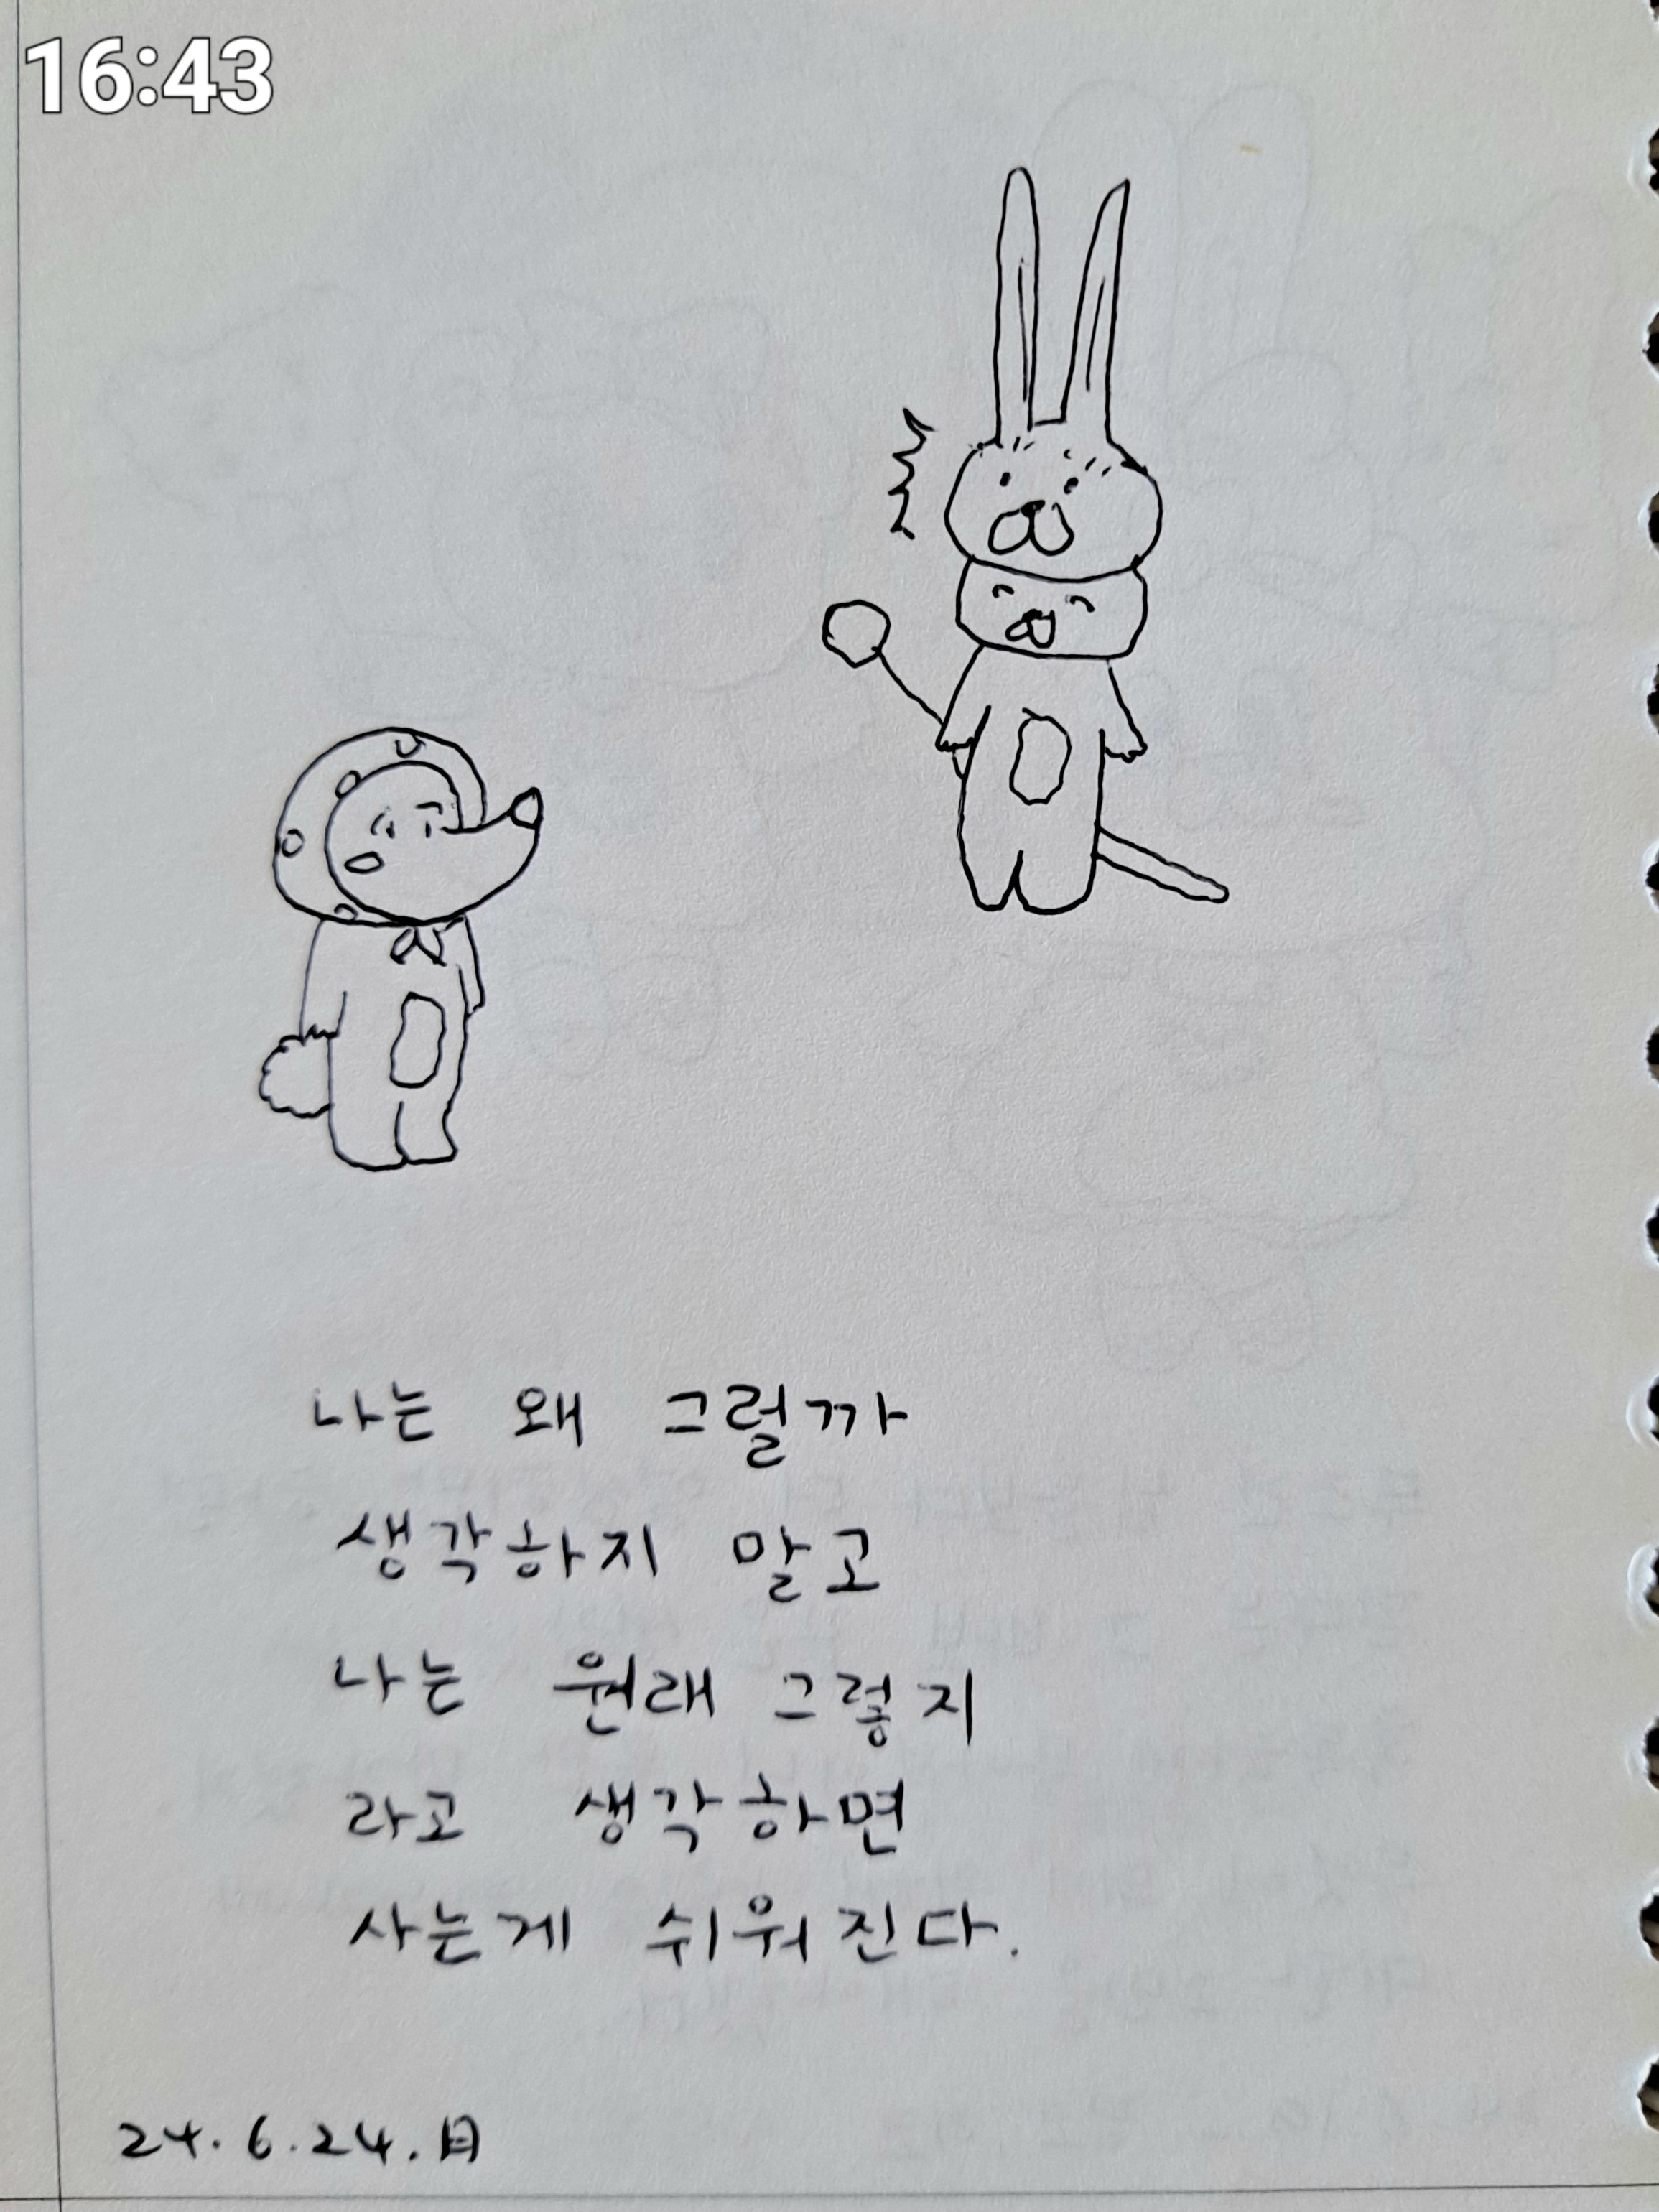 16:43
나는 왜 그럴까
생각하지 말고
나는 원래 그렇지
라고 생각하면
사는게 쉬워진다.
24.6.24.日